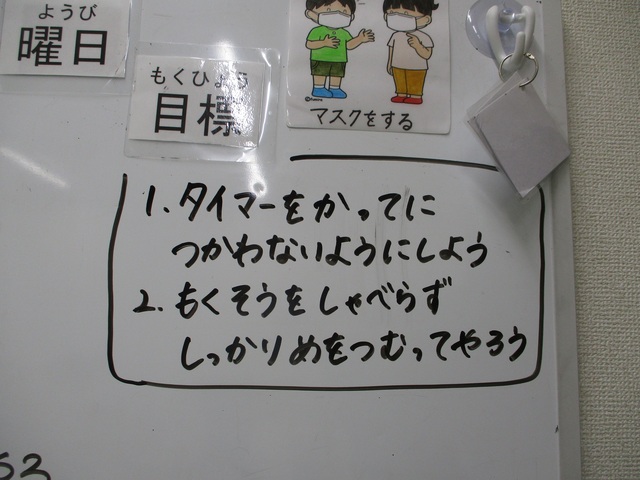 ようび
曜日
もくひょう
目標
マスクをする
1. タイマーをかってに
つかわないようにしよう
2. もくそうをしゃべらず
しっかりめをつむってやろう